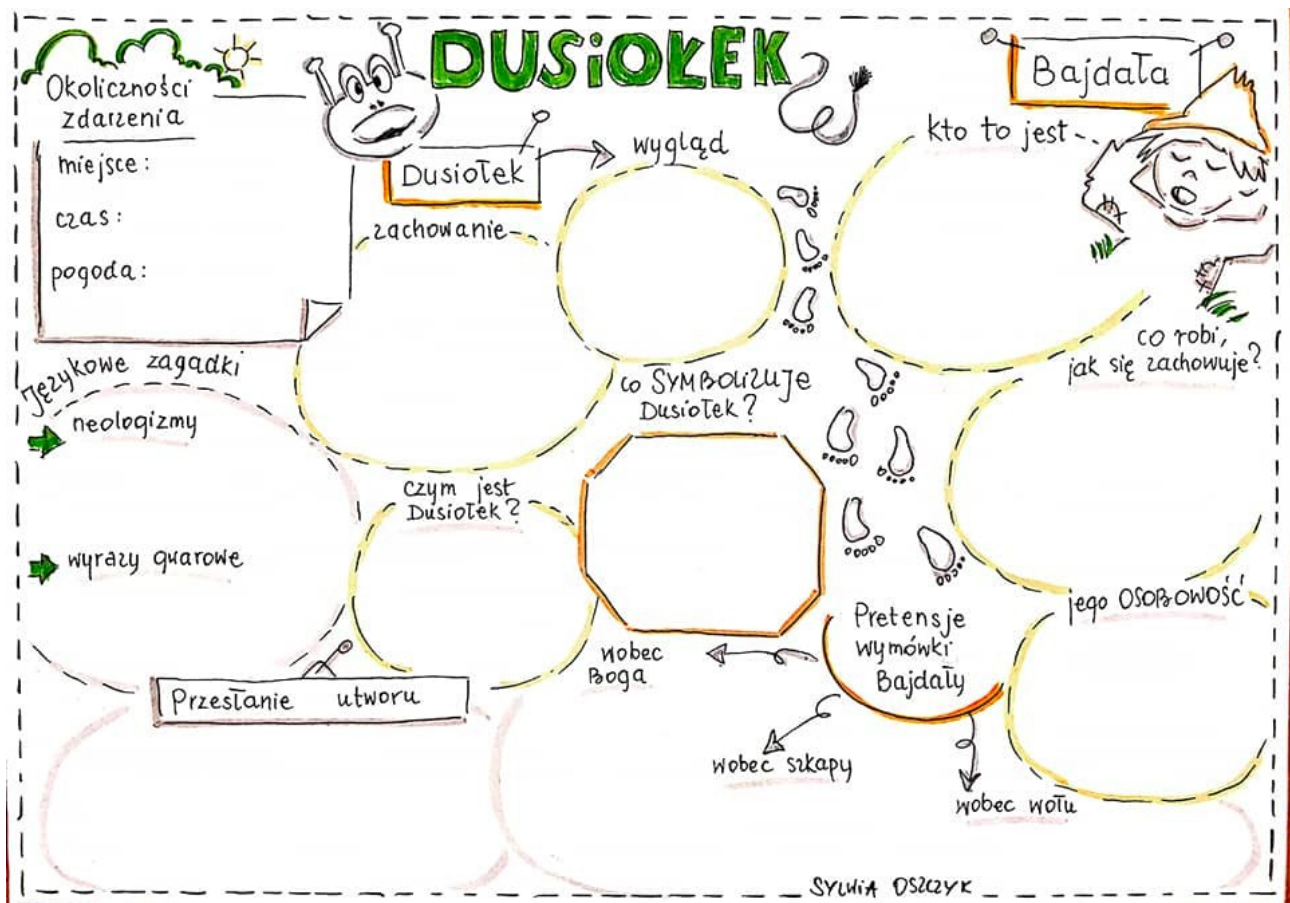 DUSiOŁEK
Okoliczności
zdarzenia
miejsce:
czas:
pogoda:
Dusiołek
wygląd
zachowanie
Bajdała
kto to jest
co robi,
jak się zachowuje?
Językowe zagadki
neologizmy
wyrazy gwarowe
co SYMBOLIZUJE
Dusiołek?
czym jest
Dusiołek?
jego OSOBOWOŚĆ
Pretensje
wymówki
Bajdały
wobec
Boga
wobec szkapy
wobec wołu
Przesłanie utworu
SYLWIA OSZCZYK